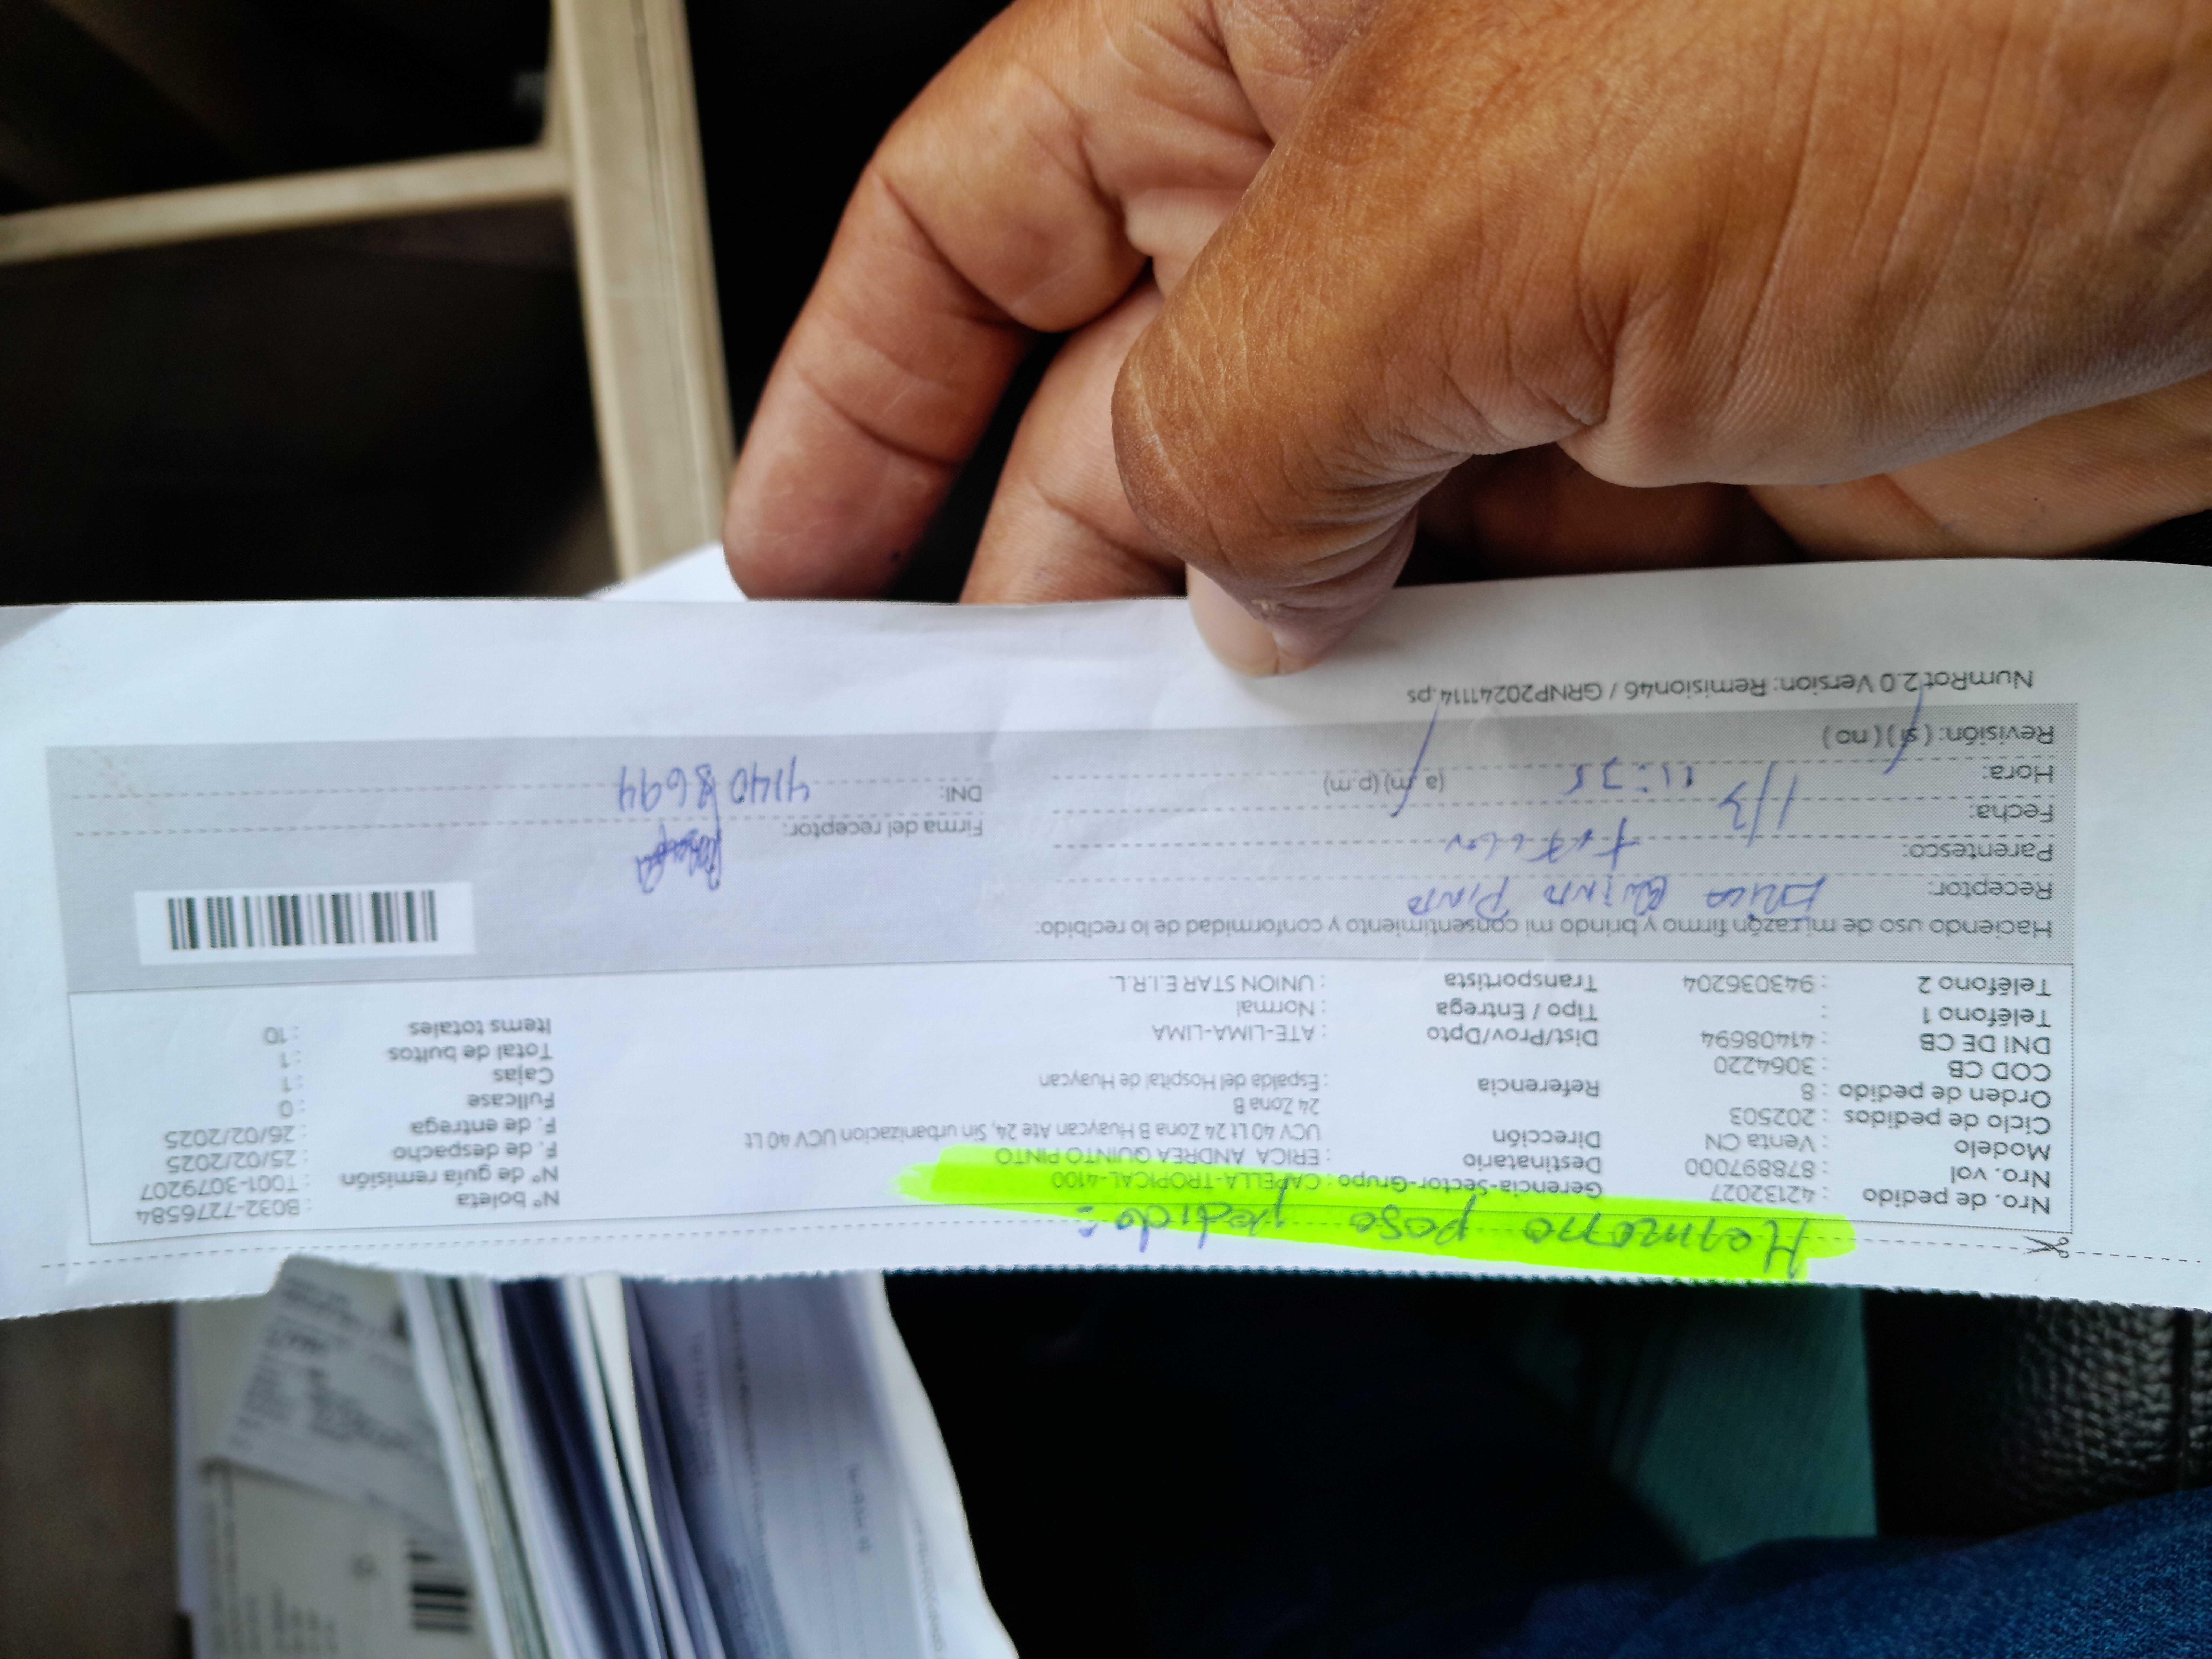 Hermano paso pedido:
Nro. de pedido : 42132027 Gerencia-Sector-Grupo : CAPELLA-TROPICAL-4100 N° boleta : B032-7276584
Nro. vol : 878897000 Destinatario : ERICA ANDREA QUINTO PINTO N° de guía remisión : T001-3079207
Modelo : Venta CN Dirección UCV 40 Lt 24 Zona B Huaycan Ate 24, Sin urbanizacion UCV 40 Lt F. de despacho : 25/02/2025
Ciclo de pedidos : 202503 24 Zona B F. de entrega : 26/02/2025
Orden de pedido : 8 Referencia : Espalda del Hospital de Huaycan Fullcase : 0
COD CB : 3064220 Cajas : 1
DNI DE CB : 41408694 Dist/Prov/Dpto : ATE-LIMA-LIMA Total de bultos : 1
Teléfono 1 : Tipo / Entrega : Normal Items totales : 10
Teléfono 2 : 943036204 Transportista : UNION STAR E.I.R.L.
Haciendo uso de mi razón firmo y brindo mi consentimiento y conformidad de lo recibido:
Receptor: Erica Quinto Pinto
Parentesco: Firma del receptor:
Fecha: 1/3 DNI: 41408694
Hora: (a.m) (p.m)
Revisión: ( si ) ( no )
NumRot 2.0 Version: Remision46 / GRNP20241114.ps